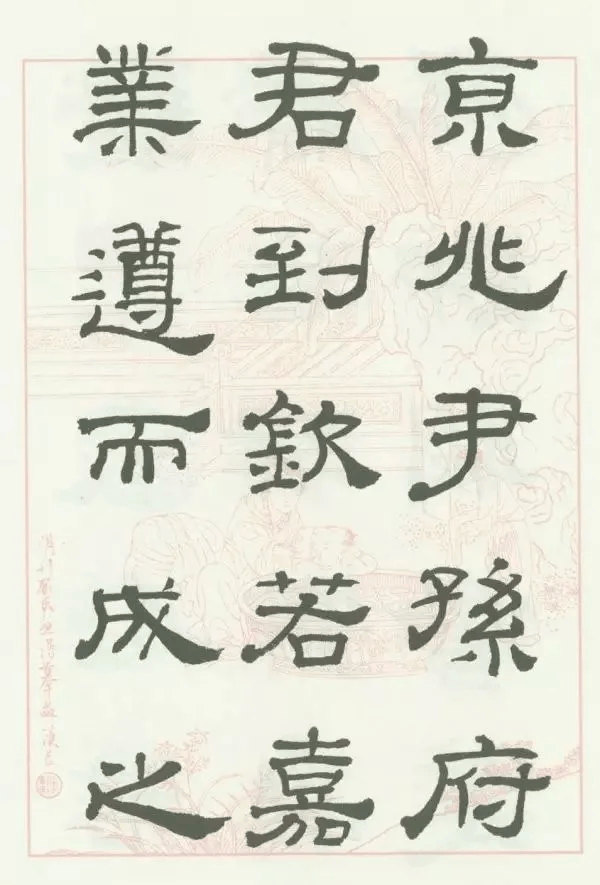 京兆尹孫府
君到欽若嘉
業遵而成之